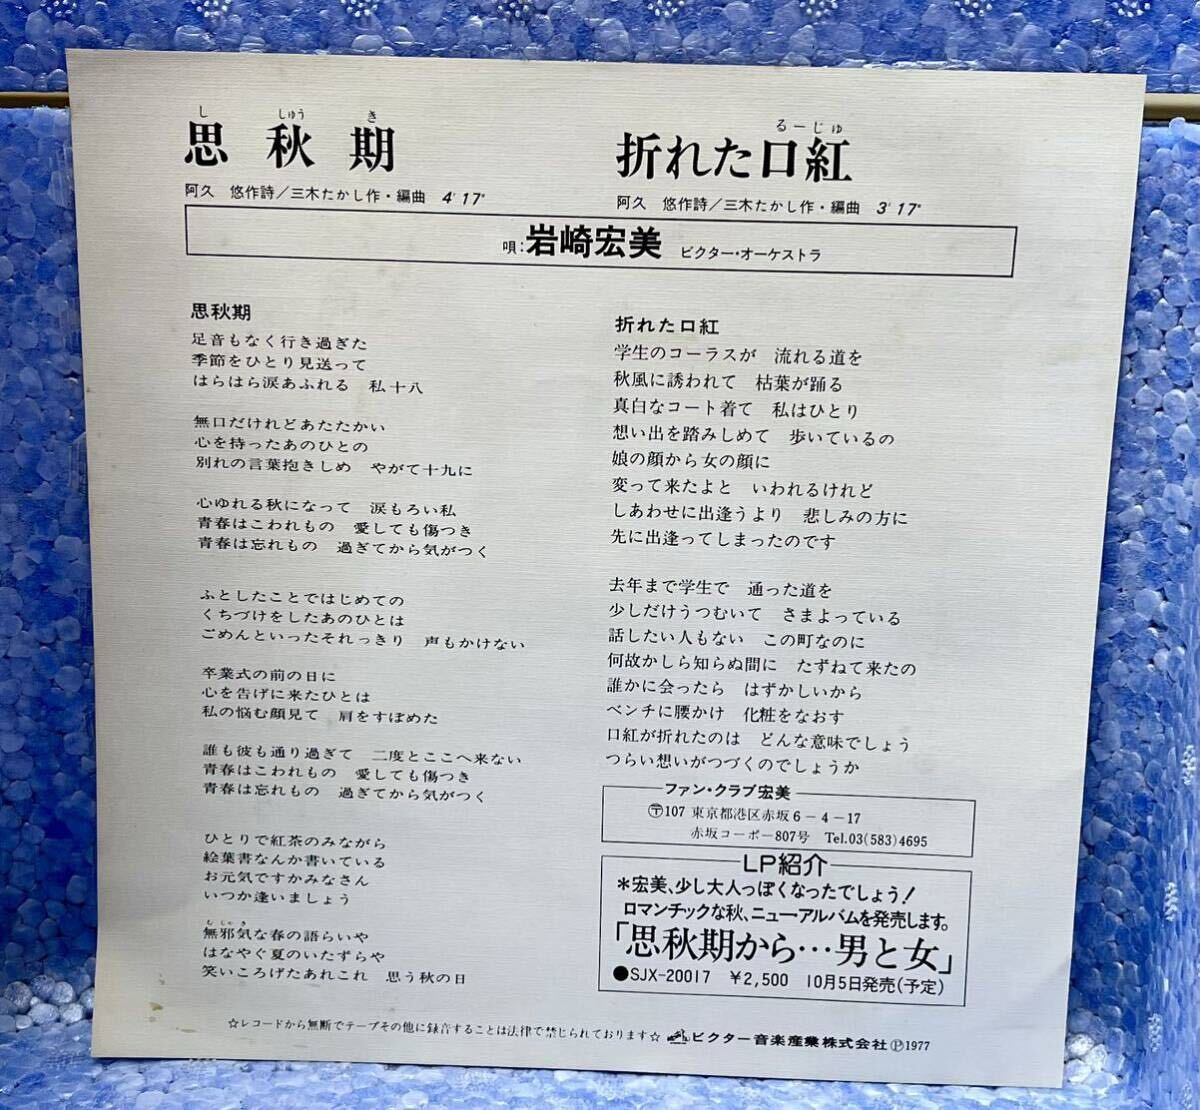 し しゅう き
思秋期
阿久 悠作詩/三木たかし作・編曲 4'17"
るーじゅ
折れた口紅
阿久 悠作詩/三木たかし作・編曲 3'17"
唄:岩崎宏美 ビクター・オーケストラ
思秋期
足音もなく行き過ぎた
季節をひとり見送って
はらはら涙あふれる 私十八
無口だけれどあたたかい
心を持ったあのひとの
別れの言葉抱きしめ やがて十九に
心ゆれる秋になって 涙もろい私
青春はこわれもの 愛しても傷つき
青春は忘れもの 過ぎてから気がつく
ふとしたことではじめての
くちづけをしたあのひとは
ごめんといったそれっきり 声もかけない
卒業式の前の日に
心を告げに来たひとは
私の悩む顔見て 肩をすぼめた
誰も彼も通り過ぎて 二度とここへ来ない
青春はこわれもの 愛しても傷つき
青春は忘れもの 過ぎてから気がつく
ひとりで紅茶のみながら
絵葉書なんか書いている
お元気ですかみなさん
いつか逢いましょう
むじゃき
無邪気な春の語らいや
はなやぐ夏のいたずらや
笑いころげたあれこれ 思う秋の日
折れた口紅
学生のコーラスが 流れる道を
秋風に誘われて 枯葉が踊る
真白なコート着て 私はひとり
想い出を踏みしめて 歩いているの
娘の顔から女の顔に
変って来たよと いわれるけれど
しあわせに出逢うより 悲しみの方に
先に出逢ってしまったのです
去年まで学生で 通った道を
少しだけうつむいて さまよっている
話したい人もない この町なのに
何故かしら知らぬ間に たずねて来たの
誰かに会ったら はずかしいから
ベンチに腰かけ 化粧をなおす
口紅が折れたのは どんな意味でしょう
つらい想いがつづくのでしょうか
ファン・クラブ宏美
〒107 東京都港区赤坂6-4-17
赤坂コーポー807号 Tel.03(583)4695
LP紹介
*宏美、少し大人っぽくなったでしょう!
ロマンチックな秋、ニュー・アルバムを発売します。
「思秋期から…男と女」
●SJX-20017 ¥2,500 10月5日発売(予定)
☆レコードから無断でテープその他に録音することは法律で禁じられております☆ ビクター音楽産業株式会社 ℗1977